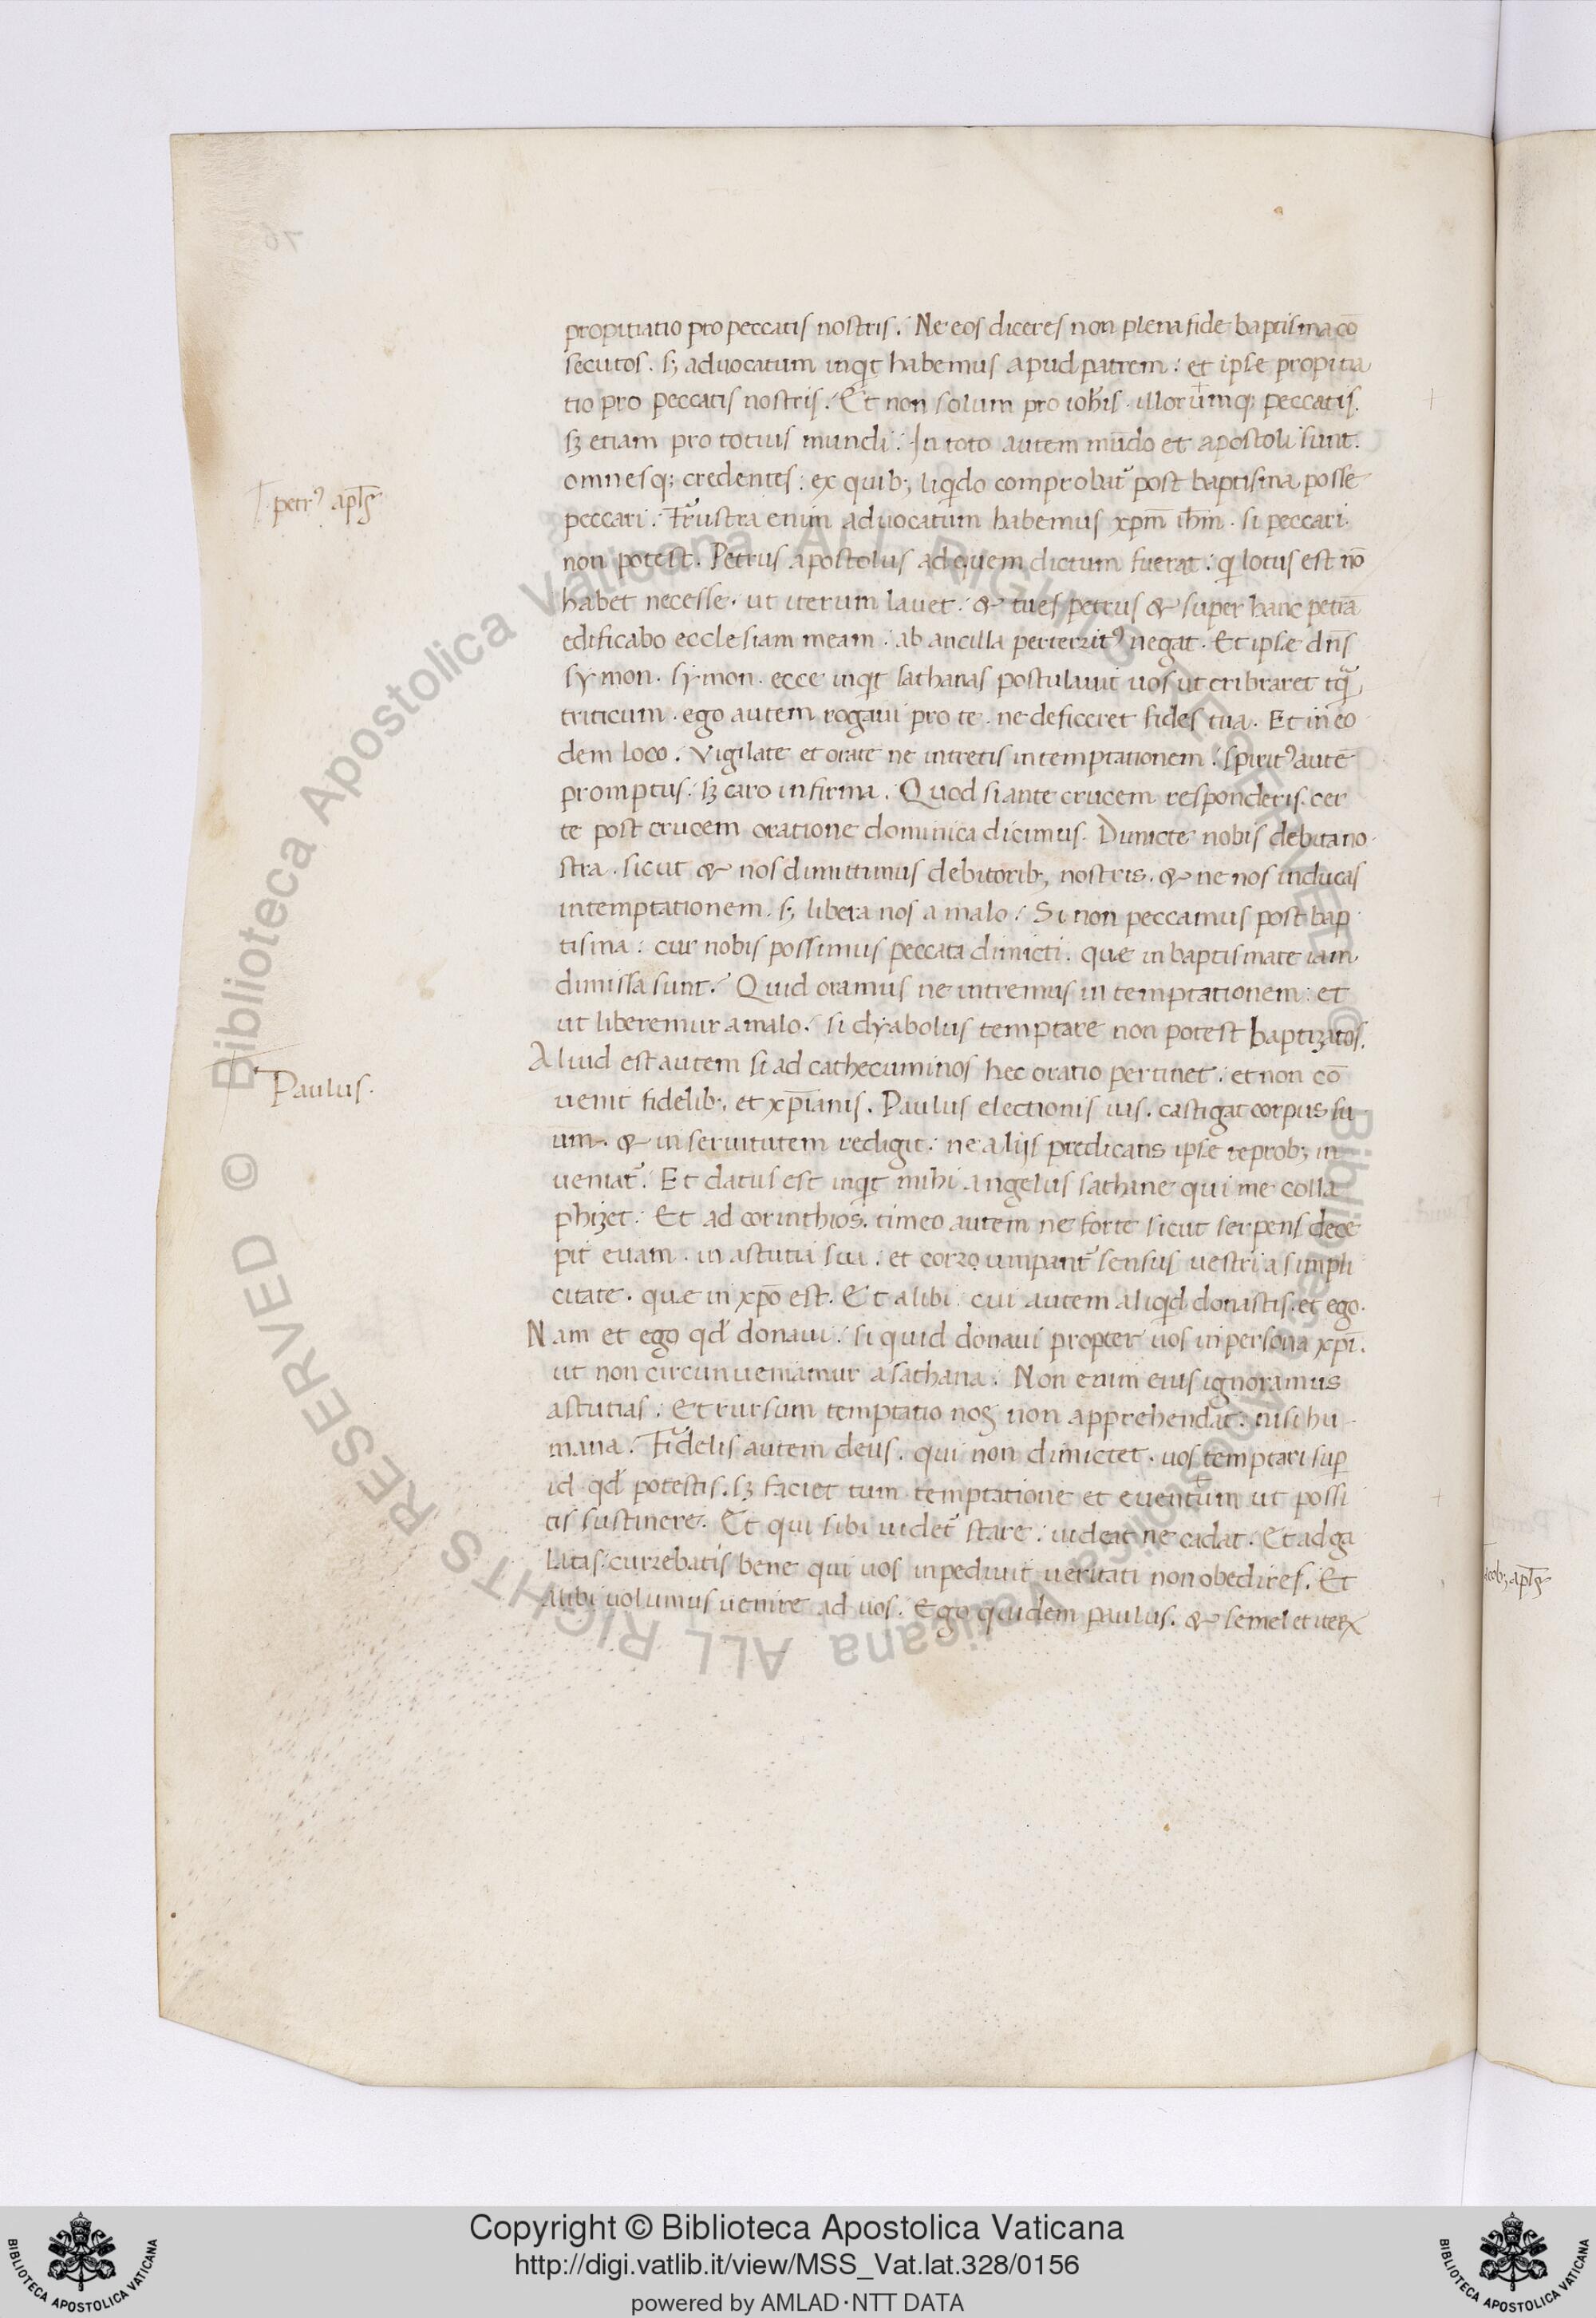 propitiatio pro peccatis nostris. Ne eos diceres non plena fide baptisma cō
secutos. sꝫ aduocatum inqt habemus apud patrem: et ipse propitia
tio pro peccatis nostris. Et non solum pro iohis. illorumqꝫ peccatis.
sꝫ etiam pro totius mundi. In toto autem mundo et apostoli sunt.
omnesqꝫ credentes: ex quibꝫ liqdo comprobat post baptisma posse
petrꝰ apls
peccari. Frustra enim aduocatum habemus xpm ihm. si peccari
non potest. Petrus apostolus ad quem dictum fuerat: q lotus est nō
habet necesse. ut iterum lauet. & tu es petrus & super hanc petrā
edificabo ecclesiam meam. ab ancilla perterritꝰ negat. Et ipse dns
symon. symon. ecce inqt sathanas postulauit uos ut cribraret tq̄
triticum. ego autem rogaui pro te. ne deficeret fides tua. Et in eo
dem loco. Vigilate et orate ne intretis in temptationem. spiritꝰ autē
promptus. sꝫ caro infirma. Quod si ante crucem responderis. cer
te post crucem oratione dominica dicimus. Dimicte nobis debita no
stra. sicut & nos dimittimus debitoribꝫ nostris. & ne nos inducas
in temptationem. sꝫ libera nos a malo. Si non peccamus post bap
tisma: cur nobis possimus peccata dimicti. quæ in baptismate iam
dimissa sunt. Quid oramus ne intremus in temptationem: et
ut liberemur a malo. si dyabolus temptare non potest baptizatos.
Aliud est autem si ad cathecuminos hec oratio pertinet. et non cō
Paulus.
uenit fidelibꝫ et xp̄ianis. Paulus electionis uas. castigat corpus su
um. & in seruitutem redigit. ne aliis predicans ipse reprobꝫ in
ueniat. Et datus est inqt mihi angelus sathane qui me colla
phizet. Et ad corinthios. timeo autem ne forte sicut serpens dece
pit euam. in astutia sua. et corrumpant sensus uestri a simpli
citate. quæ in xpō est. Et alibi. cui autem aliqd donastis. et ego.
Nam et ego qd donaui. si quid donaui propter uos in persona xpi.
ut non circunueniamur a sathana. Non enim eius ignoramus
astutias. Et rursum temptatio nos non apprehendat. nisi hu
mana. Fidelis autem deus. qui non dimictet. uos temptari sup
id qd potestis. sꝫ faciet cum temptatione et euentum ut possi
tis sustinere. Et qui sibi uidet stare. uideat ne cadat. Et ad ga
latas. currebatis bene qui uos inpediuit ueritati non obedires. Et
alibi uolumus uenire ad uos. Ego quidem paulus. & semel et iterꝝ
iacobꝫ apls
Copyright © Biblioteca Apostolica Vaticana
http://digi.vatlib.it/view/MSS_Vat.lat.328/0156
powered by AMLAD·NTT DATA
BIBLIOTECA APOSTOLICA VATICANA
BIBLIOTECA APOSTOLICA VATICANA
© Biblioteca Apostolica Vaticana ALL RIGHTS RESERVED
© Biblioteca Apostolica Vaticana ALL RIGHTS RESERVED